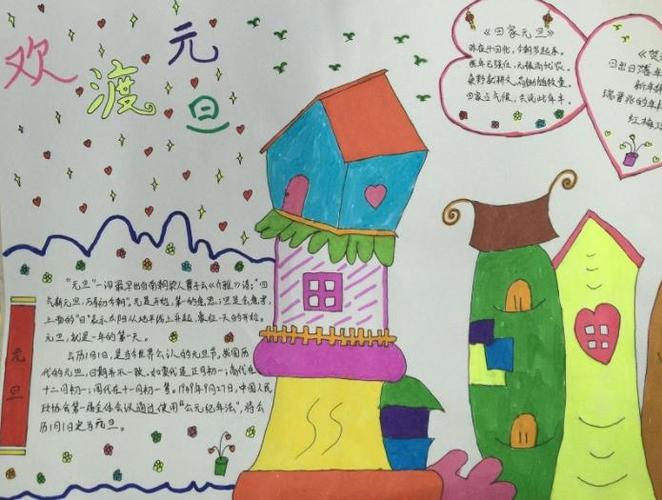 欢
渡
元
旦
《田家元旦》
昨夜斗回北，今朝岁起东。
我年已强仕，无禄尚忧农。
桑野就耕父，荷锄随牧童。
田家占气候，共说此年丰。
日出日落年
新年
红梅
元旦
"元旦"一词最早出自南朝梁人萧子云《介雅》诗："四
气新元旦，万寿初今朝"。元是开始，第一的意思；旦是会意字，
上面的"日"表示太阳从地平线上升起，象征一天的开始。
元旦，就是一年的第一天。
公历1月1日，是当今世界公认的元旦节。我国历
代的元旦，日期并不一致。如夏代是正月初一；商代在
十二月初一；周代在十一月初一等。1949年9月27日，中国人民
政协会第一届全体会议通过使用"公元纪年法"，将公
历1月1日定为元旦。